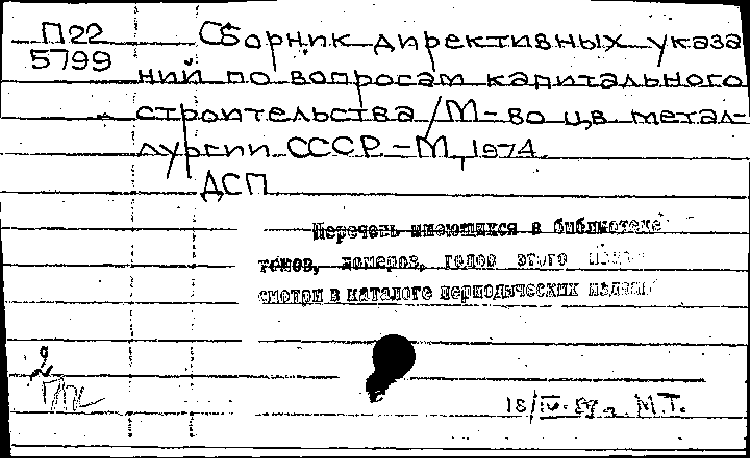 П22
5799
Сборник директивных указа
ний по вопросам капитального
строительства / М-во цв. метал-
лургии СССР. - М., 1974.
ДСП
Перечень имеющихся в библиотеке
томов, номеров, годов этого
смотри в каталоге периодических издан
2
18/IV-89 г. М.Т.